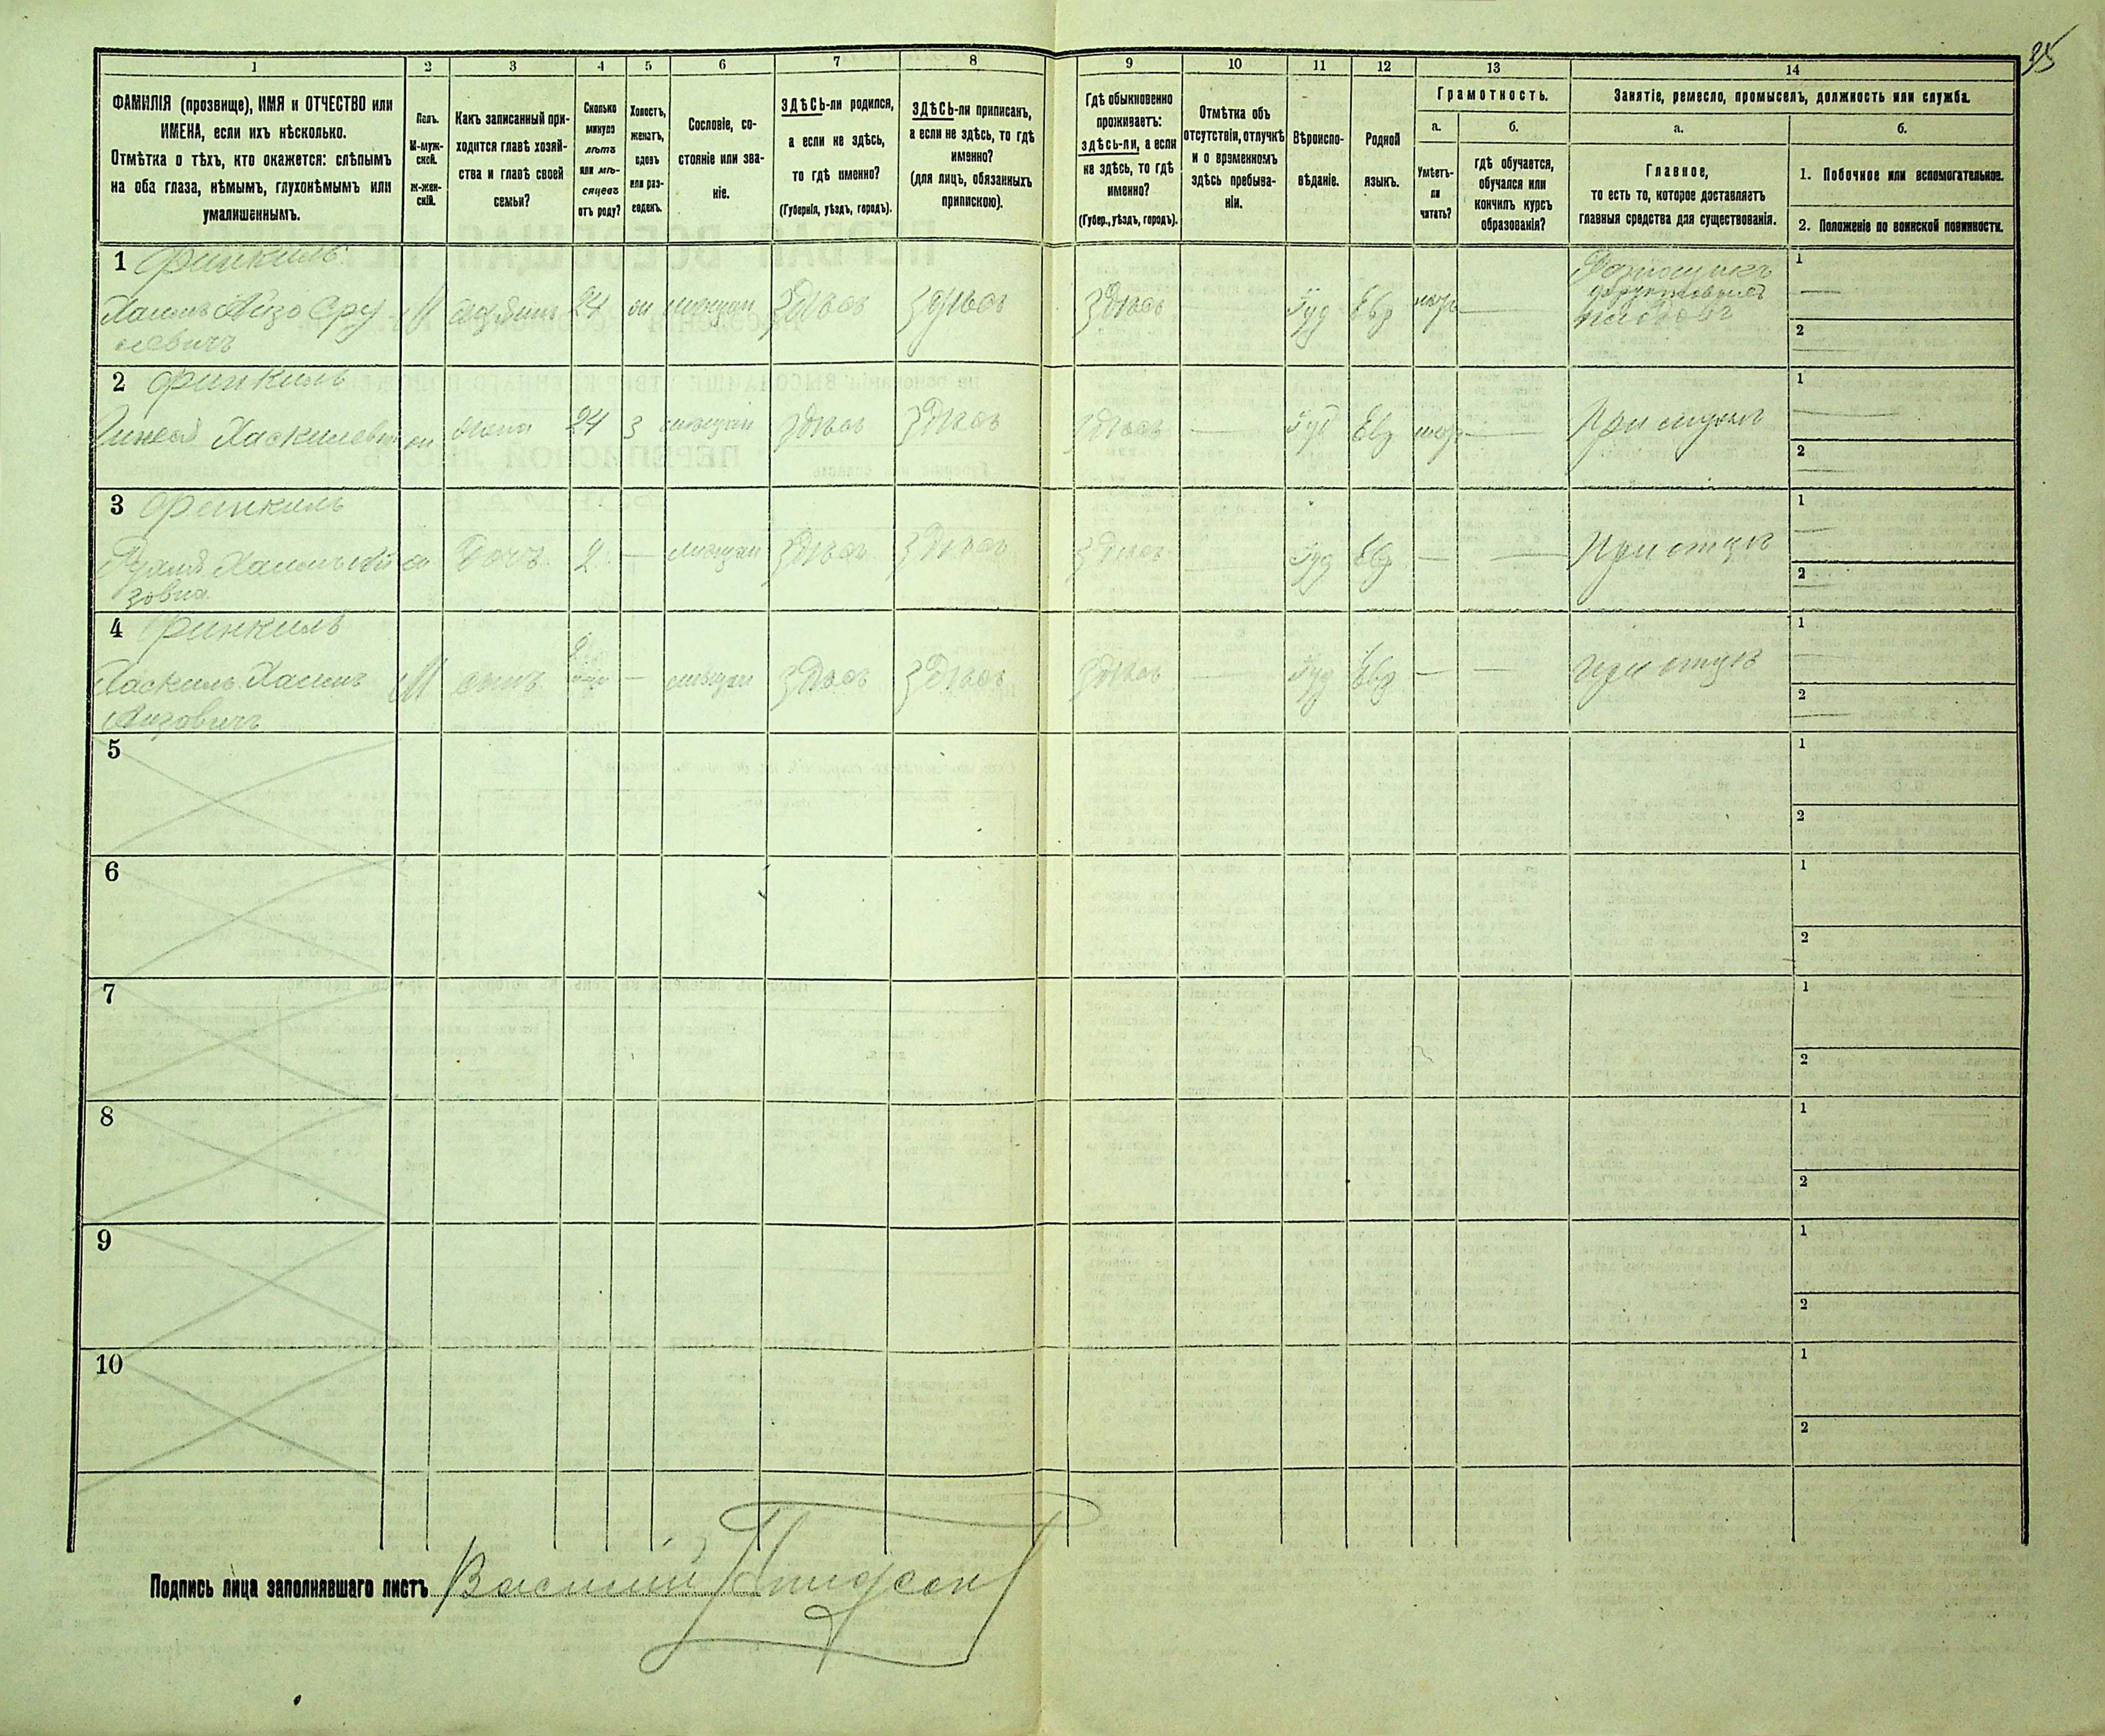 35
1
2
3
4
5
6
7
8
9
10
11
12
13
14
ФАМИЛІЯ (прозвище), ИМЯ и ОТЧЕСТВО или
ИМЕНА, если ихъ нѣсколько.
Отмѣтка о тѣхъ, кто окажется: слѣпымъ
на оба глаза, нѣмымъ, глухонѣмымъ или
умалишеннымъ.
Полъ.
М-муж-
ской.
ж-жен-
скій.
Какъ записанный при-
ходится главѣ хозяй-
ства и главѣ своей
семьи?
Сколько
минуло
лѣтъ
или мѣ-
сяцевъ
отъ роду?
Холостъ,
женатъ,
вдовъ
или раз-
веденъ.
Сословіе, со-
стояніе или зва-
ніе.
ЗДѢСЬ-ли родился,
а если не здѣсь,
то гдѣ именно?
(Губернія, уѣздъ, городъ).
ЗДѢСЬ-ли приписанъ,
а если не здѣсь, то гдѣ
именно?
(для лицъ, обязанныхъ
припискою).
Гдѣ обыкновенно
проживаетъ:
здѣсь-ли, а если
не здѣсь, то гдѣ
именно?
(Губер., уѣздъ, городъ).
Отмѣтка объ
отсутствіи, отлучкѣ
и о временномъ
здѣсь пребыва-
ніи.
Вѣроиспо-
вѣданіе.
Родной
языкъ.
Грамотность.
а.
Умѣетъ-
ли
читать?
б.
гдѣ обучается,
обучался или
кончилъ курсъ
образованія?
Занятіе, ремесло, промыселъ, должность или служба.
а.
Главное,
то есть то, которое доставляетъ
главныя средства для существованія.
б.
1. Побочное или вспомогательное.
2. Положеніе по воинской повинности.
1 Финкиль
Хаимъ Айзо Сру
левичъ
М
24
мѣщан
Здѣсь
Здѣсь
Здѣсь
Іуд
Евр
фруктовыхъ
1
2
2 Финкиль
Хаскилевна
жена
24
З
мѣщан
Здѣсь
Здѣсь
Здѣсь
Іуд
Евр
При мужѣ
1
2
3 Финкиль
Хаимъ Ай
зовна
Дочь
2
мѣщан
Здѣсь
Здѣсь
Здѣсь
Іуд
Евр
При отцѣ
1
2
4 Финкиль
Хаскиль Хаимъ
Айзовичъ
М
сынъ
мѣщан
Здѣсь
Здѣсь
Здѣсь
Іуд
Евр
при отцѣ
1
2
5
1
2
6
1
2
7
1
2
8
1
2
9
1
2
10
1
2
Подпись лица заполнявшаго листъ Василій